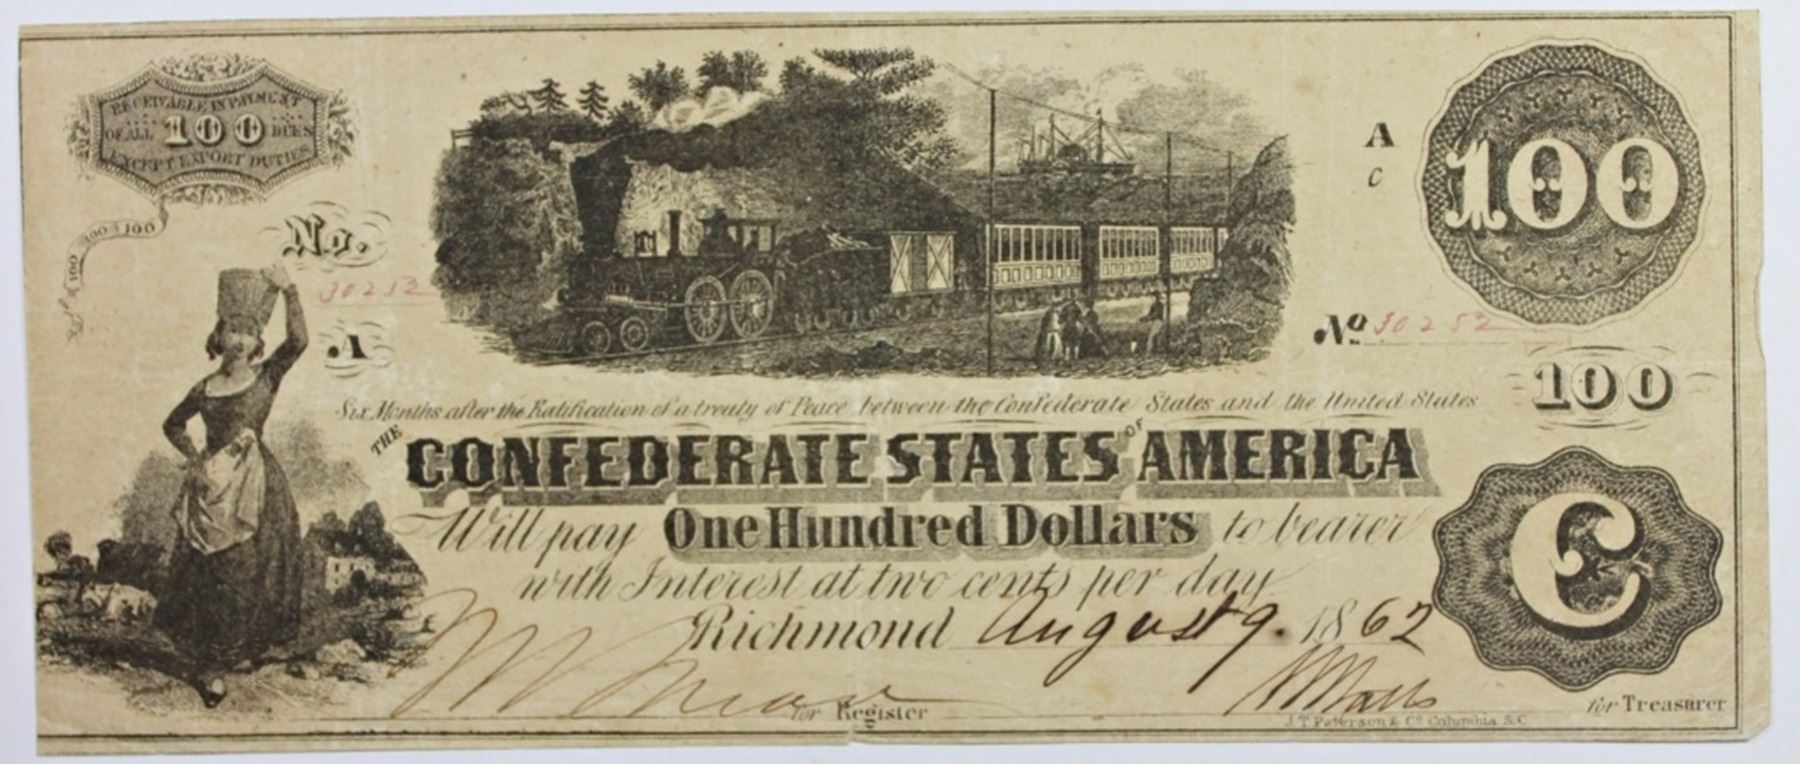 RECEIVABLE IN PAYMENT
OF ALL 100 DUES
EXCEPT EXPORT DUTIES
100 100
100
No.
30252
A
A
C
100
No 30252
100
Six Months after the Ratification of a treaty of Peace between the Confederate States and the United States
THE CONFEDERATE STATES OF AMERICA
Will pay One Hundred Dollars to bearer
with Interest at two cents per day
Richmond August 9. 1862
C
for Register
for Treasurer
J.T. Paterson & Co Columbia S.C.